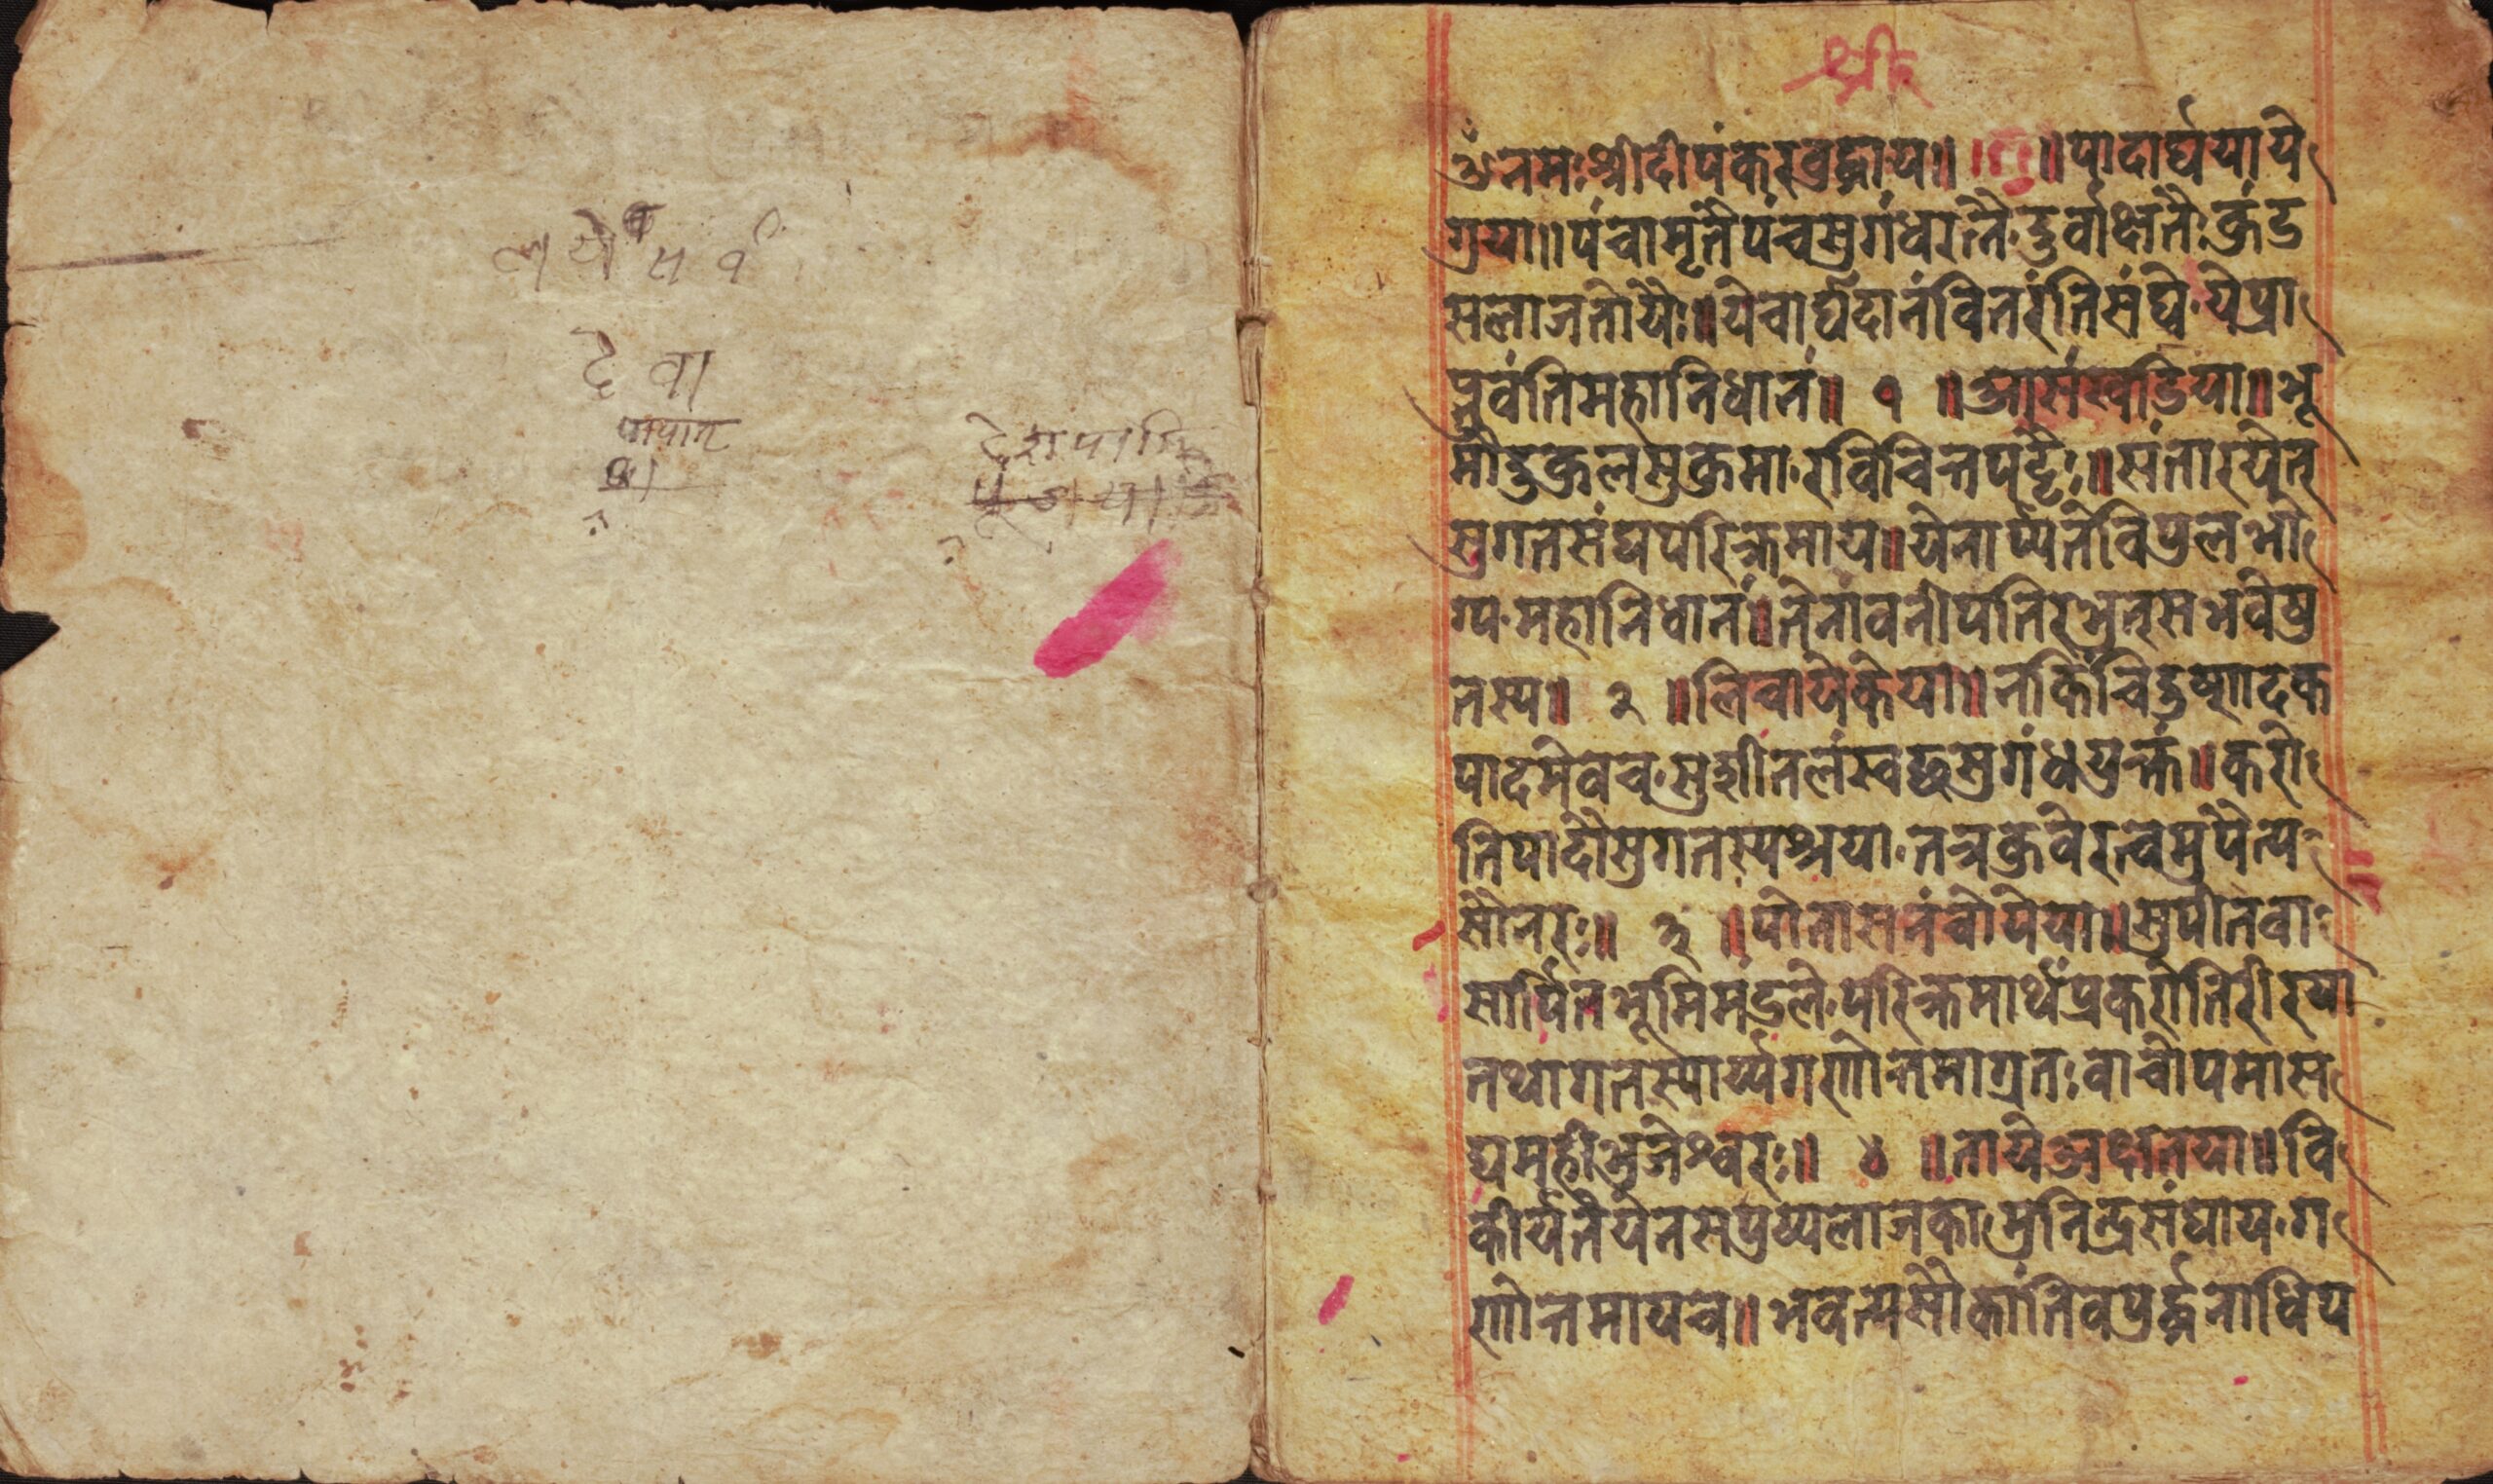 देवा
श्री
ॐ नमः श्रीदीपंकरवुद्धाय॥ ॥पादार्घयाये
ग्रया॥पंचामृतैपंचसुगंधरत्नै·दुर्वाक्षतैः कुंदु
सलाजतोयैः॥येचार्घदानंवितरंतिसंघे·येप्रा
प्नुवंतिमहानिधानं॥ १ ॥आसंखाडिया॥भू
मौदुकूलसुकुमा·रविचित्तपट्टैः॥संतारयेत्
सुगतसंघपरिक्रमाय॥येनार्प्पतेविपुलभो
ग्य·महानिधानं॥तेनावनीपतिरभुत्सभवेषु
तस्य॥ २ ॥लिचायेकेया॥नकिंचिदुष्णोदक
पादमेवच·सुशीतलंस्वच्छसुगंधयुक्तं॥करो
तिपादौसुगतस्यश्रया·तत्रकुवेरत्वमुपैत्य
सौनरः॥ ३ ॥पोतासनंवोयेया॥सुपीतवा
सार्पितभूमिमंडले·परिक्रमार्थंप्रकरोतिरीरया
तथागतस्यार्य्यगणोत्तमाग्रतः वाचोपमास
द्यमहीभुजेश्वरः॥ ४ ॥तायेअक्षतया॥वि
कीर्यतेयेनसपुष्पलाजका·मुनिन्द्रसंघाय·ग
णोत्तमायच॥भवत्यसौकांतिवपुर्द्धनाधिप